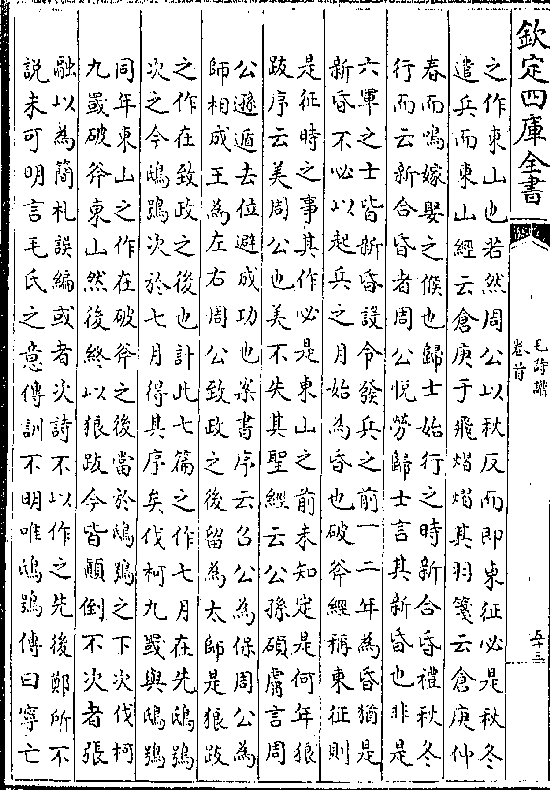 欽定四庫全書
毛詩譜
卷首
五十三
之作東山也若然周公以秋反而即東征必是秋冬
遣兵而東山經云倉庚于飛熠燿其羽箋云倉庚仲
春而鳴嫁娶之候也歸士始行之時新合昏禮秋冬
行而云新合昏者周公悅勞歸士言其新昏也非是
六軍之士皆新昏設令發兵之前一二年為昏猶是
新昏不必以起兵之月始為昏也破斧經稱東征則
是征時之事其作必是東山之前未知定是何年狼
跋序云美周公也美不失其聖經云公孫碩膚言周
公遜遁去位避成功也案書序云召公為保周公為
師相成王為左右周公致政之後留為太師是狼跋
之作在致政之後也計此七篇之作七月在先鴟鴞
次之今鴟鴞次於七月得其序矣伐柯九罭與鴟鴞
同年東山之作在破斧之後當於鴟鴞之下次伐柯
九罭破斧東山然後終以狼跋今皆顛倒不次者張
融以為簡札誤編或者次詩不以作之先後鄭所不
說未可明言毛氏之意傳訓不明唯鴟鴞傳曰寧亡